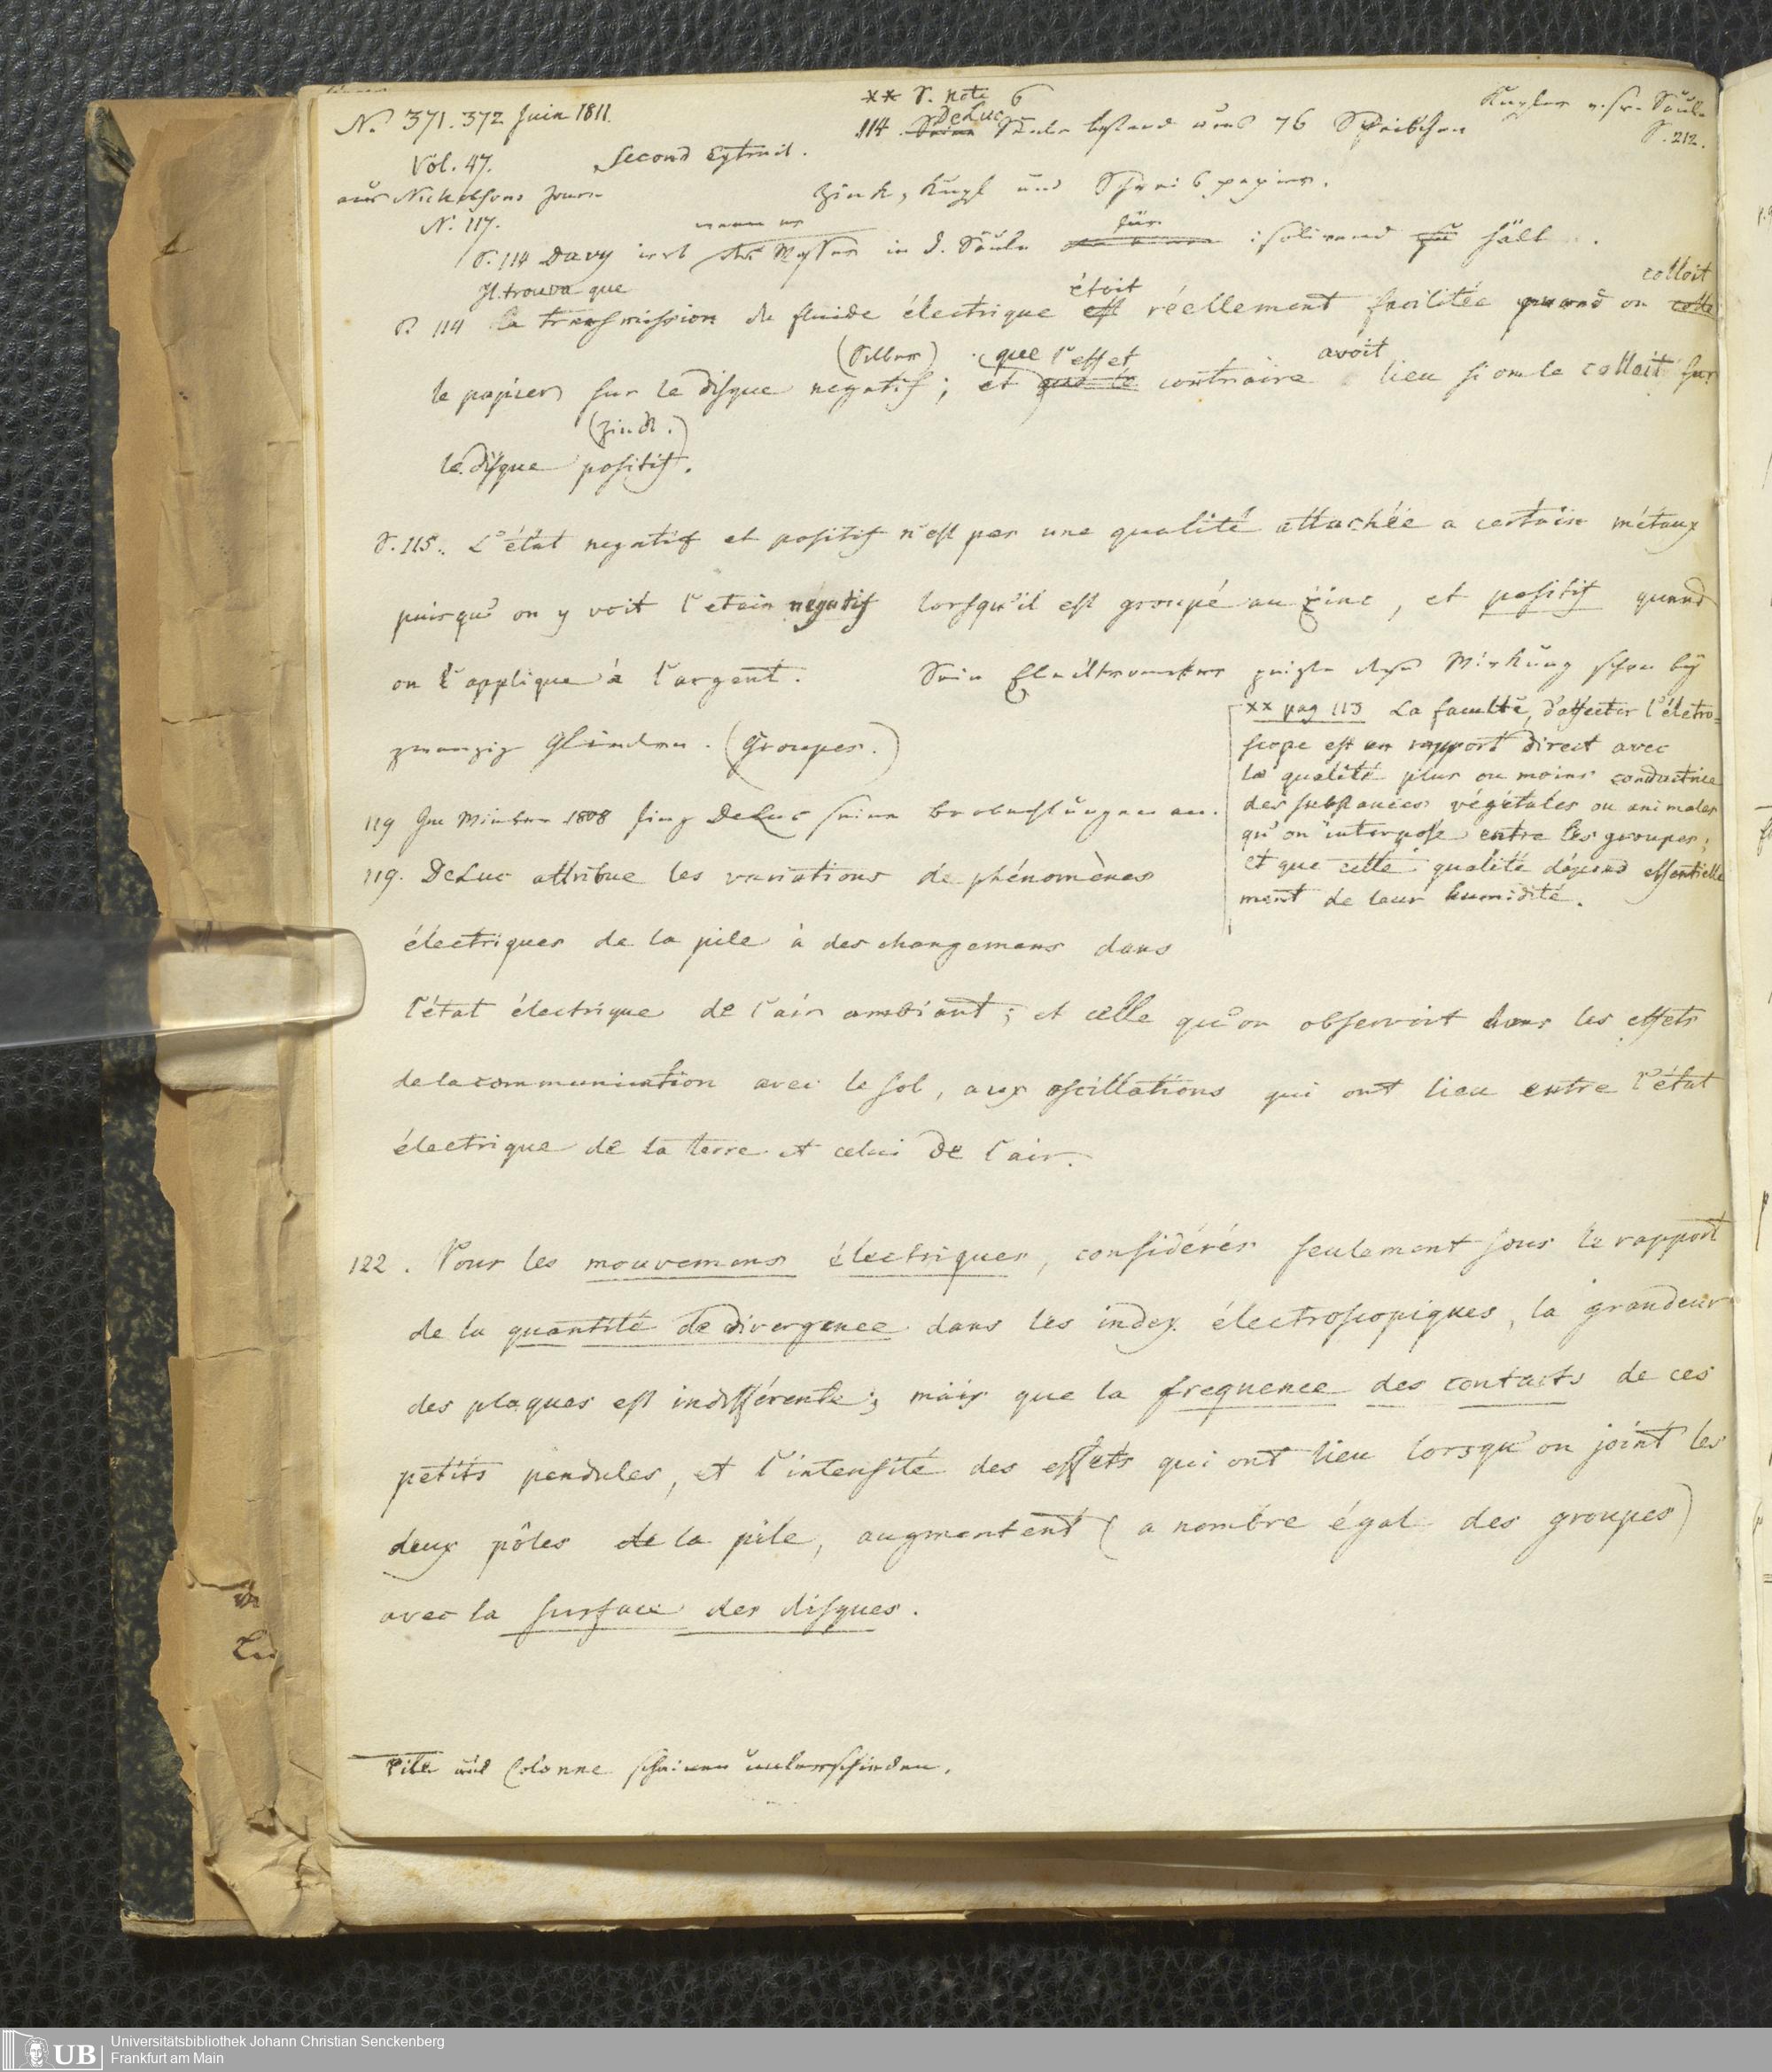 N.° 371. 372 Juin 1811.
Vol. 47.
Second Extrait.
aus Nicholsons Journ.
N. 117.
** S. note 6
DeLuc
114. Seine Säule bestand aus 76 Scheibchen
Zink, Kupf und Schreibpapier.
S. 212.
S. 114 Davy irrt wenn er in d. Säule für isolirend zu hält.
Il trouva que étoit colloit
S. 114 la transmission du fluide électrique est réellement facilitée quand on colle
(Silber) que l'effet avoit
le papier sur le disque negatif; et que le contraire lieu si on le colloit sur
(Zink.)
le disque positif.
S. 115. L'état negatif et positif n'est pas une qualité attachée a certain métaux
puisqu'on y voit l'etain négatif lorsqu'il est groupé au zinc, et positif quand
on l'applique à l'argent. Sein Electrometer zeigte diese Wirkung schon bey
zwanzig Gliedern. (Groupes.)
** pag 113 La faculté, d'affecter l'életro=
scope est en rapport direct avec
la qualité plus ou moins conductrice
des substances végétales ou animales
qu'on interpose entre les groupes;
et que cette qualité dépend essentielle
ment de leur humidité.
119 Im Winter 1808 fing DeLuc seine Beobachtungen an.
119. DeLuc attribue les variations de phénomènes
électriques de la pile à des changemens dans
l'état électrique de l'air ambiant; et celle qu'on observoit dans les effets
de la communication avec le sol, aux oscillations qui ont lieu entre l'état
électrique de la terre et celui de l'air.
122. Pour les mouvemens électriques, considérés seulement sous le rapport
de la quantité de divergence dans les index électroscopiques, la grandeur
des plaques est indifférente; mais que la frequence des contacts de ces
petits pendules, et l'intensité des effets qui ont lieu lorsqu'on joint les
deux pôles de la pile, augmentent (a nombre égal des groupes)
avec la surface des disques.
Pile und Colonne scheinen unterschieden.
UB Universitätsbibliothek Johann Christian Senckenberg
Frankfurt am Main